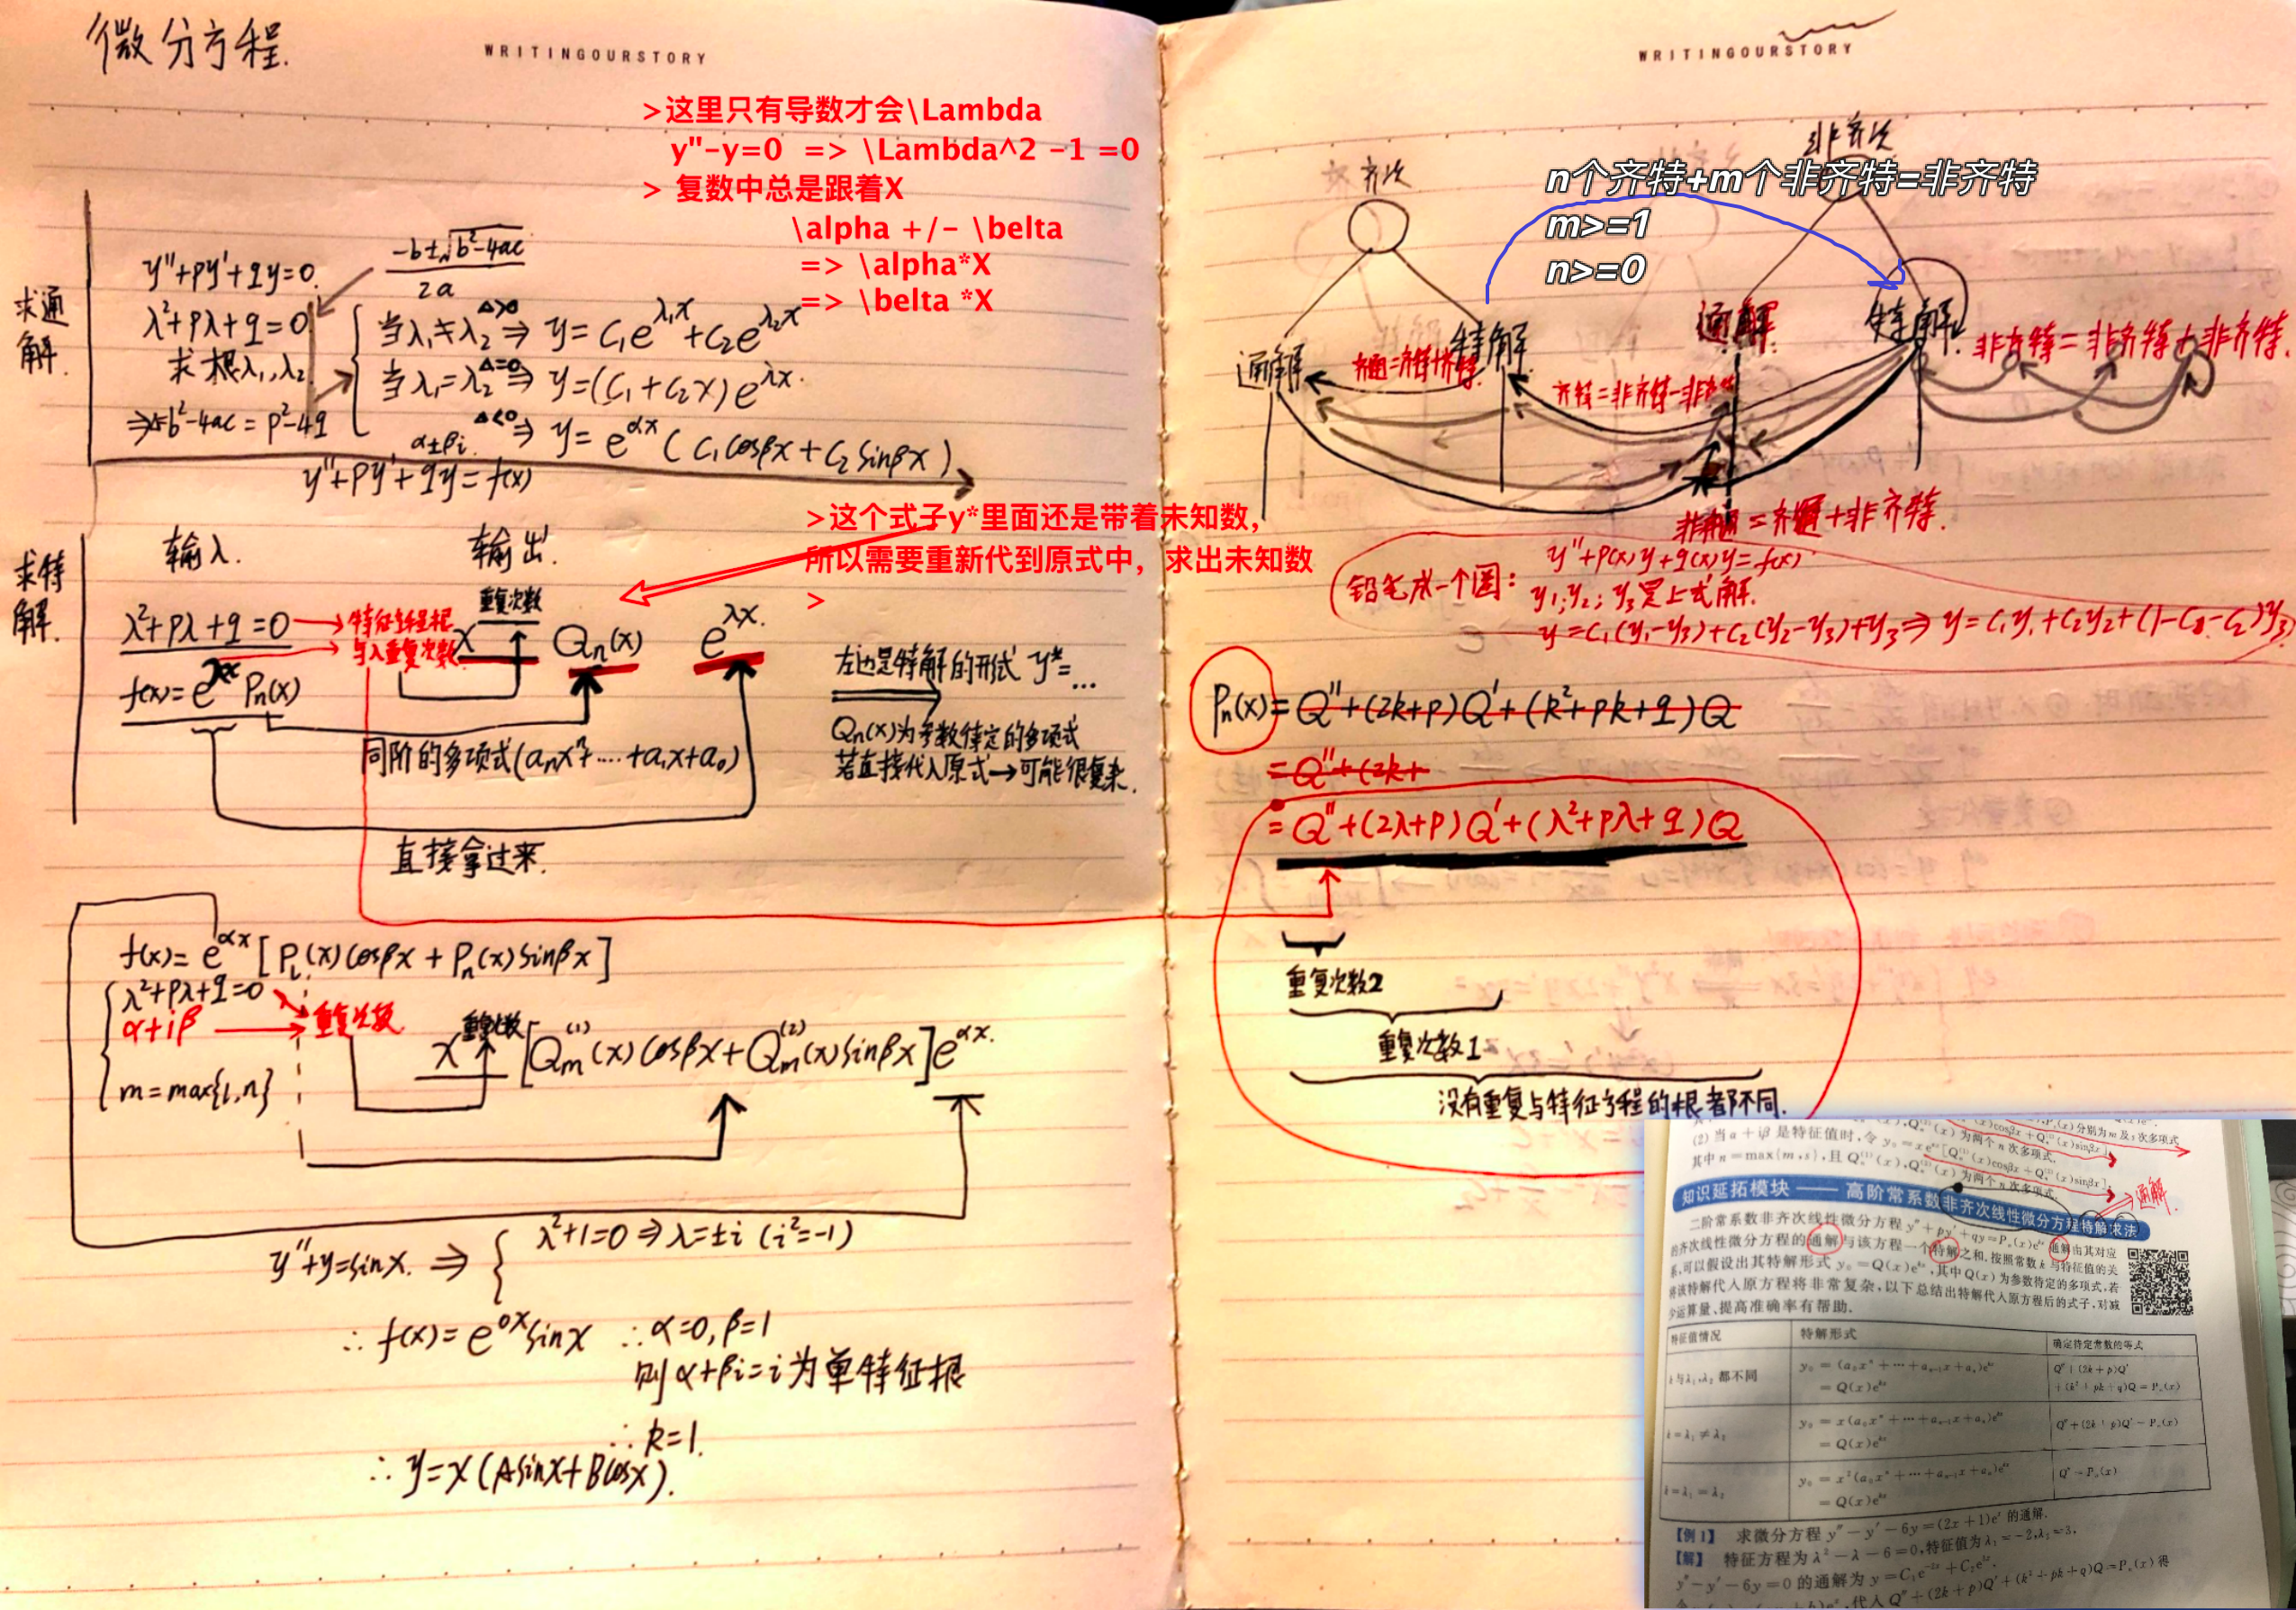 微分方程.
WRITINGOURSTORY
>这里只有导数才会\Lambda
y"-y=0 => \Lambda^2 -1 =0
> 复数中总是跟着X
\alpha +/- \belta
=> \alpha*X
=> \belta *X
求通解.
y''+py'+qy=0.
λ²+pλ+q=0
求根λ₁,λ₂
⇒Δ=b²-4ac=p²-4q
(-b±√(b²-4ac))/2a
当λ₁≠λ₂ Δ>0 ⇒ y=C₁e^{λ₁x}+C₂e^{λ₂x}
当λ₁=λ₂ Δ=0 ⇒ y=(C₁+C₂x)e^{λx}.
α±βi. Δ<0 ⇒ y=e^{αx}(C₁cosβx+C₂sinβx)
y''+py'+qy=f(x)
>这个式子y*里面还是带着未知数,
所以需要重新代到原式中，求出未知数
>
求特解.
输入. 输出.
λ²+pλ+q=0 → 特征方程根
与λ重复次数
f(x)=e^{λx}Pn(x)
x^{重复次数} Qn(x) e^{λx}.
左边是特解的形式 y*=...
Qn(x)为参数待定的多项式
若直接代入原式→可能很复杂.
同阶的多项式(aₙxⁿ+....+a₁x+a₀)
直接拿过来.
f(x)=e^{αx}[P_l(x)cosβx+Pn(x)sinβx]
λ²+pλ+q=0
α+iβ → 重复次数
m=max{l,n}
x^{重复次数}[Qm⁽¹⁾(x)cosβx+Qm⁽²⁾(x)sinβx]e^{αx}.
y''+y=sinx. ⇒ { λ²+1=0⇒λ=±i (i²=-1)
∴ f(x)=e^{0x}sinx ∴α=0,β=1
则α+βi=i为单特征根
∴k=1.
∴y=x(Asinx+Bcosx).
WRITINGOURSTORY
齐次
非齐次
n个齐特+m个非齐特=非齐特
m>=1
n>=0
通解 特解 通解 特解
齐通=齐特+齐特.
齐特=非齐特-非齐特
非齐特=非齐特+非齐特.
非齐通=齐通+非齐特.
铅笔成一个圈:
y''+p(x)y+q(x)y=f(x)
y₁,y₂,y₃是上式解.
y=C₁(y₁-y₃)+C₂(y₂-y₃)+y₃⇒y=C₁y₁+C₂y₂+(1-C₁-C₂)y₃
Pn(x)=Q''+(2k+p)Q'+(k²+pk+q)Q
=Q''+(2k+
=Q''+(2λ+p)Q'+(λ²+pλ+q)Q
重复次数2
重复次数1
没有重复与特征方程的根都不同.
(2) 当α+iβ是特征值时,令
其中n=max{m,s},且Qn⁽¹⁾(x),Qn⁽²⁾(x)为两个n次多项式.
知识延拓模块 —— 高阶常系数非齐次线性微分方程特解求法
通解.
二阶常系数非齐次线性微分方程y''+py'+qy=Pn(x)e^{kx}通解由其对应
的齐次线性微分方程的通解与该方程一个特解之和,按照常数k与特征值的关
系,可以假设出其特解形式y₀=Q(x)e^{kx},其中Q(x)为参数待定的多项式,若
将该特解代入原方程将非常复杂,以下总结出特解代入原方程后的式子,对减
少运算量、提高准确率有帮助.
特征值情况 特解形式 确定待定常数的等式
k与λ₁,λ₂都不同 y₀=(a₀xⁿ+⋯+aₙ₋₁x+aₙ)e^{kx} =Q(x)e^{kx} Q''+(2k+p)Q'+(k²+pk+q)Q=Pn(x)
k=λ₁≠λ₂ y₀=x(a₀xⁿ+⋯+aₙ₋₁x+aₙ)e^{kx} =Q(x)e^{kx} Q''+(2k+p)Q'=Pn(x)
k=λ₁=λ₂ y₀=x²(a₀xⁿ+⋯+aₙ₋₁x+aₙ)e^{kx} =Q(x)e^{kx} Q''=Pn(x)
【例1】 求微分方程y''-y'-6y=(2x+1)eˣ的通解.
【解】 特征方程为λ²-λ-6=0,特征值为λ₁=-2,λ₂=3,
y''-y'-6y=0的通解为y=C₁e^{-2x}+C₂e^{3x}.
代入Q''+(2k+p)Q'+(k²+pk+q)Q=Pn(x)得